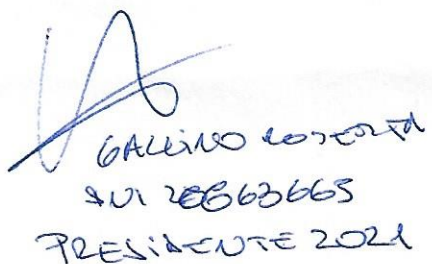 GALLINO ROBERTO
DNI 28663665
PRESIDENTE 2021